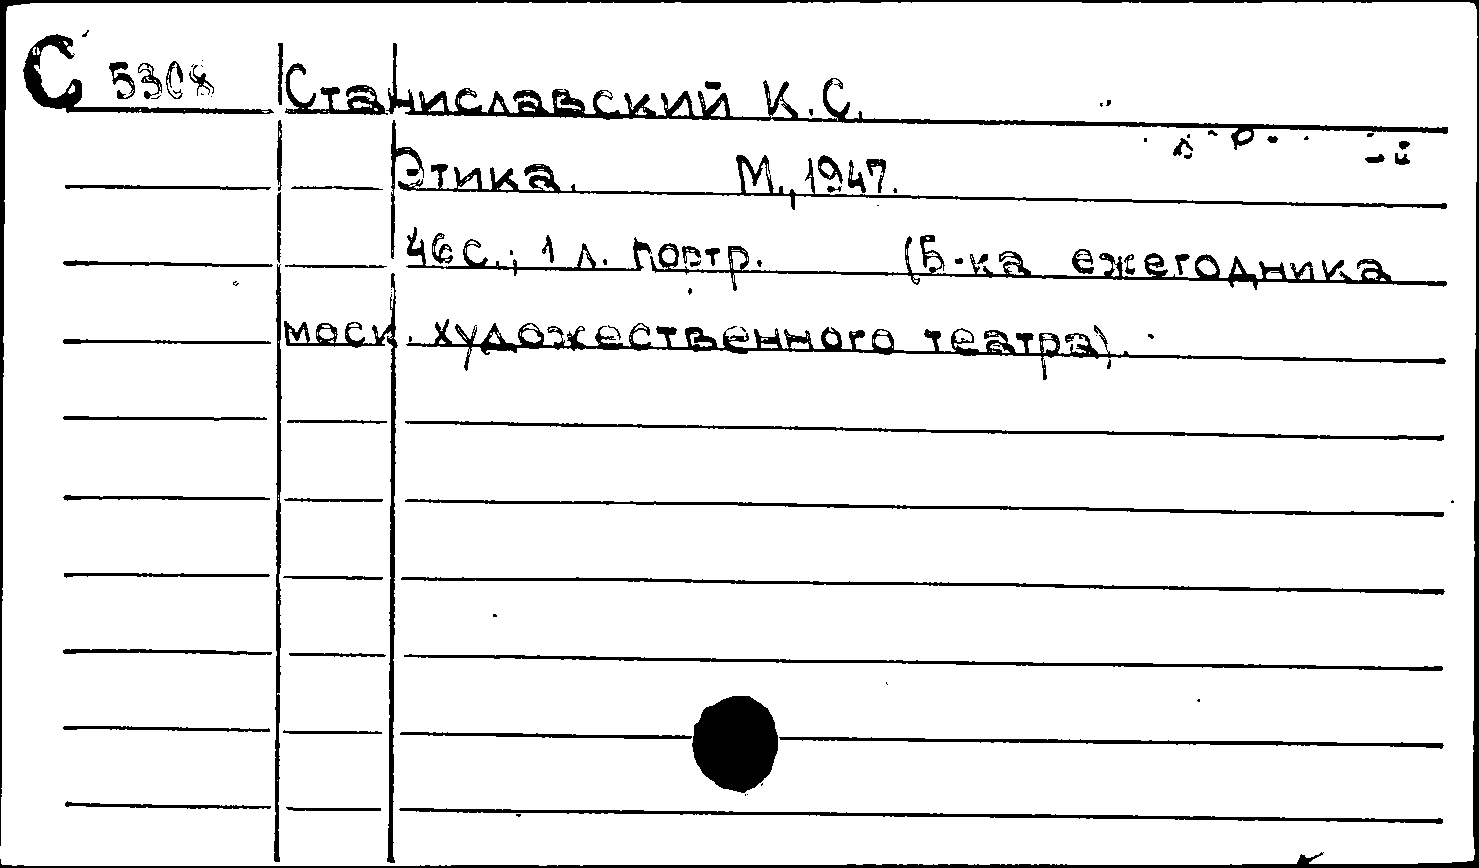 С 5308 Станиславский К.С.
Этика. М., 1947.
46 с.; 1 л. портр. (Б-ка ежегодника
моск. художественного театра).